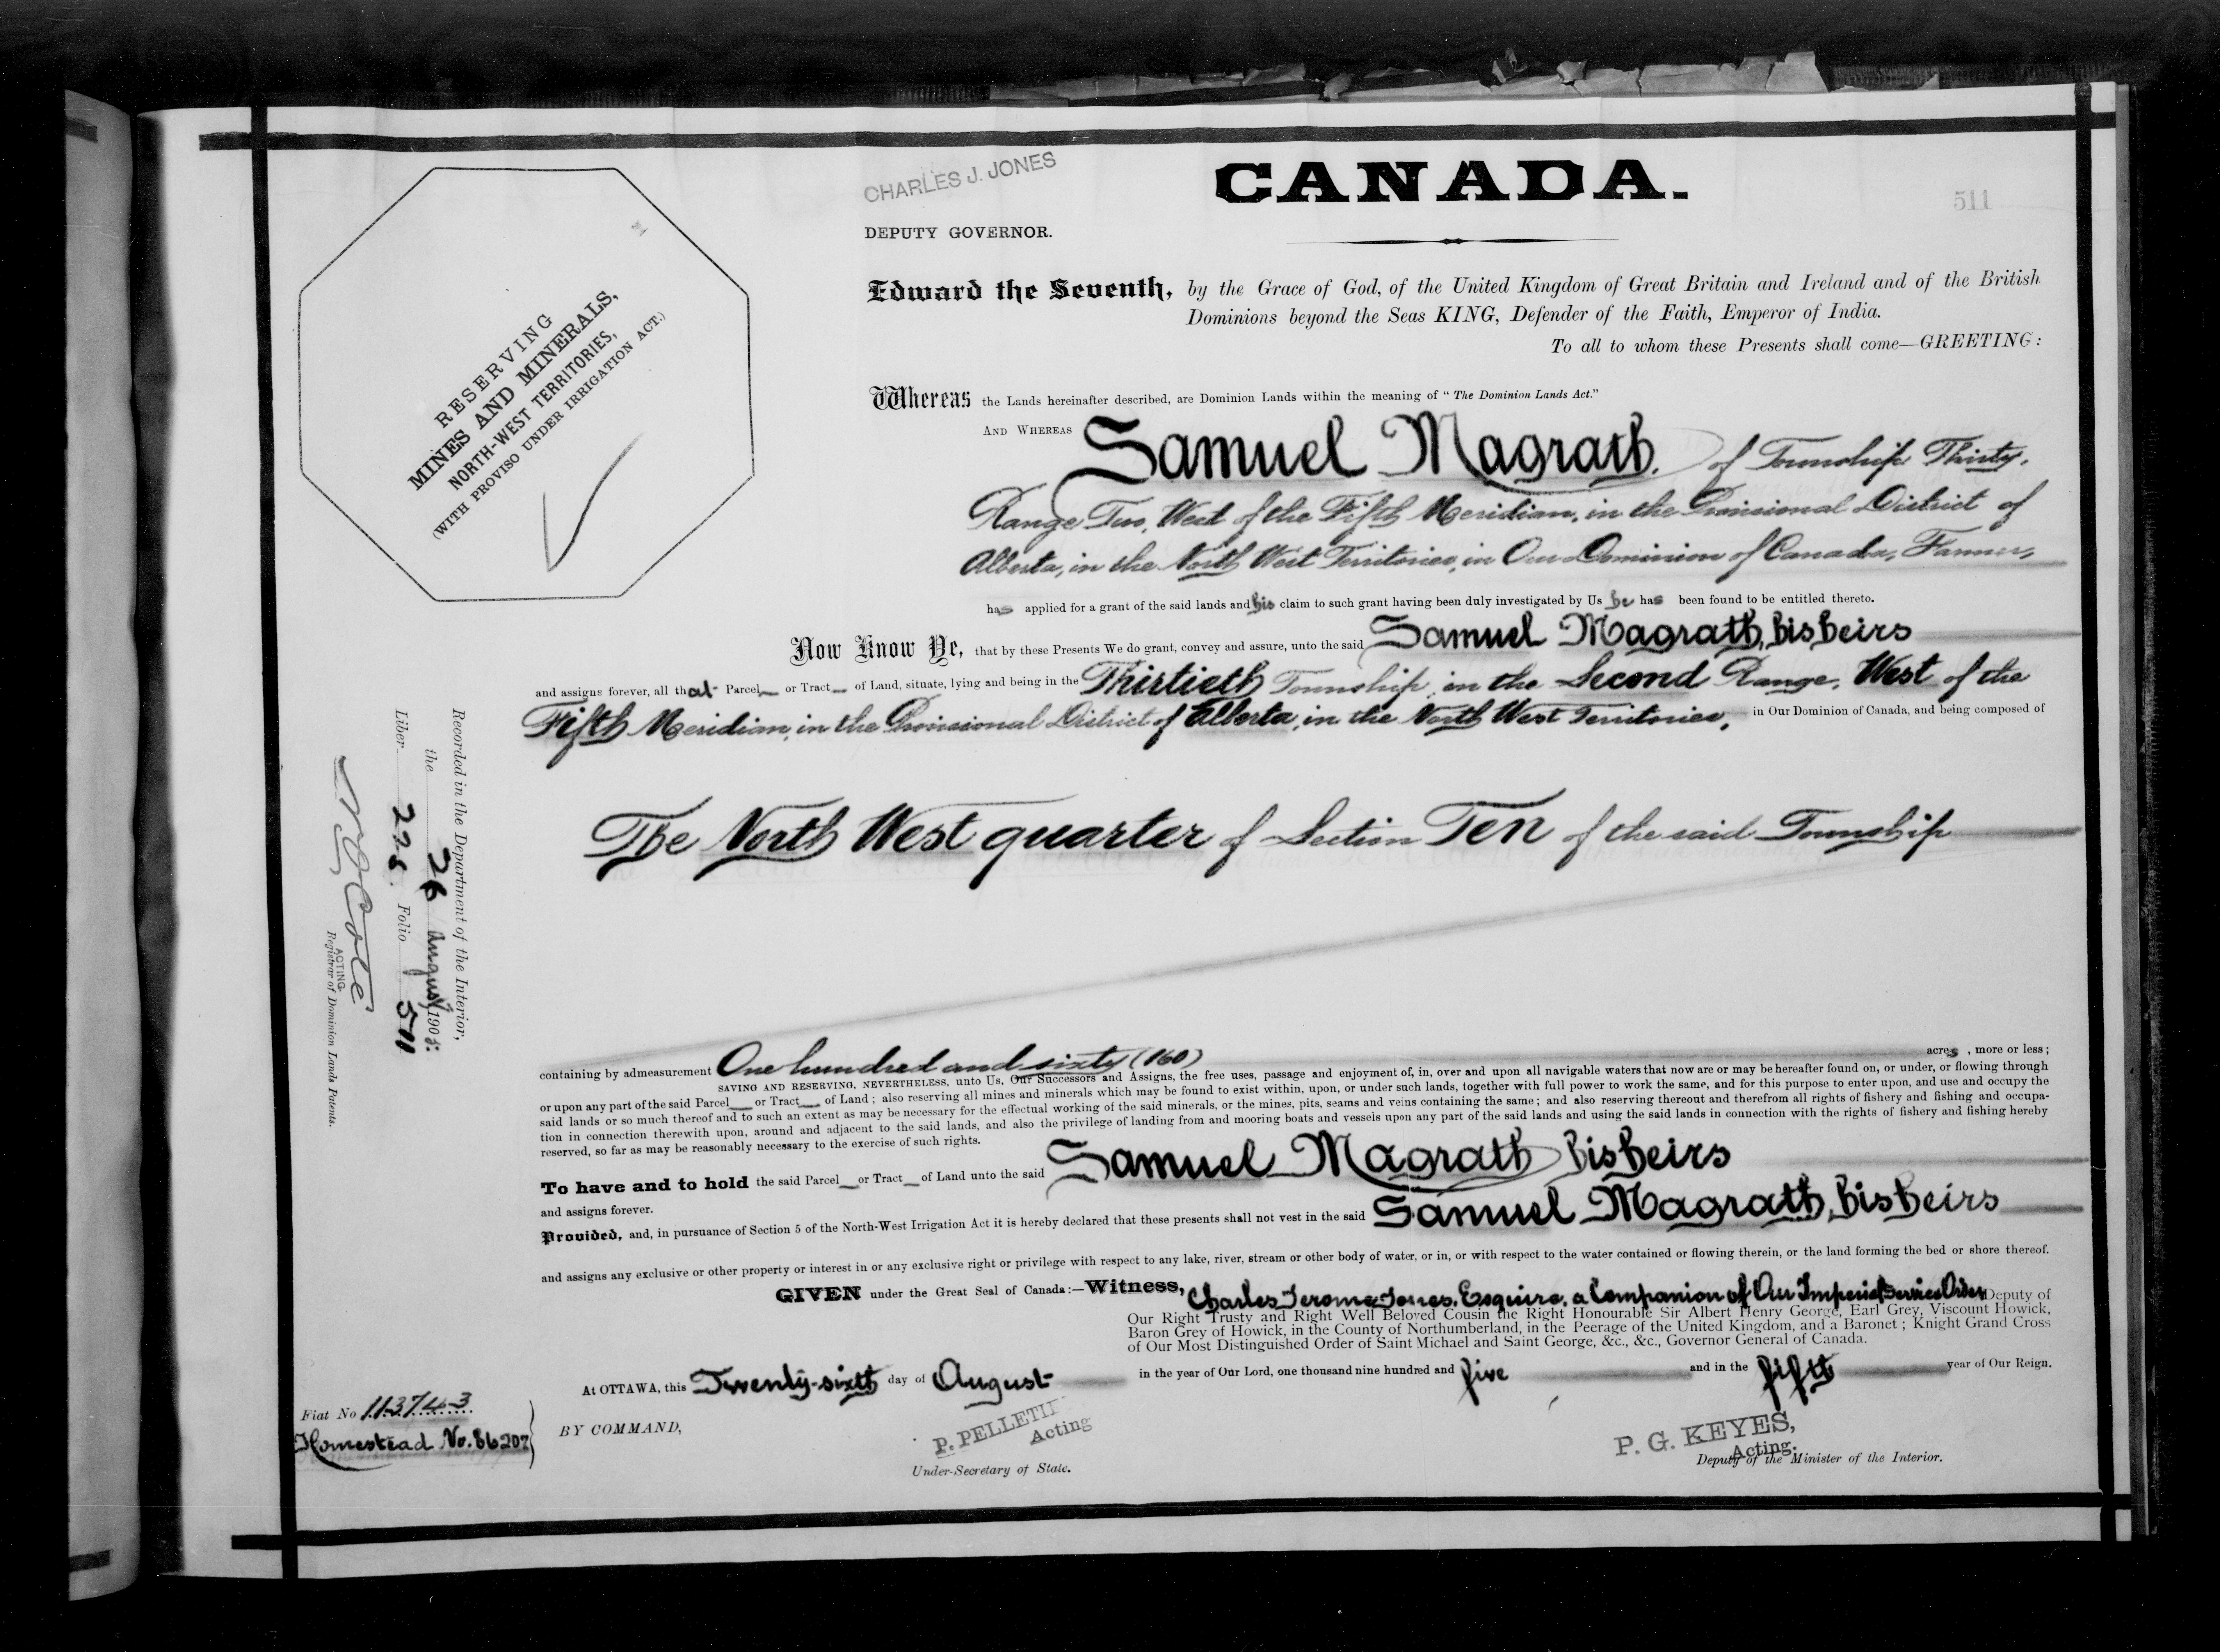 CHARLES J. JONES
DEPUTY GOVERNOR.
CANADA.
511
RESERVING
MINES AND MINERALS,
NORTH-WEST TERRITORIES,
(WITH PROVISO UNDER IRRIGATION ACT.)
Edward the Seventh, by the Grace of God, of the United Kingdom of Great Britain and Ireland and of the British
Dominions beyond the Seas KING, Defender of the Faith, Emperor of India.
To all to whom these Presents shall come—GREETING:
Whereas the Lands hereinafter described, are Dominion Lands within the meaning of "The Dominion Lands Act."
AND WHEREAS Samuel Magrath. of Township Thirty,
Range Two, West of the Fifth Meridian, in the Provisional District of
Alberta, in the North West Territories, in Our Dominion of Canada, Farmer,
has applied for a grant of the said lands and his claim to such grant having been duly investigated by Us he has been found to be entitled thereto.
Now Know Ye, that by these Presents We do grant, convey and assure, unto the said Samuel Magrath, his heirs
and assigns forever, all that Parcel or Tract of Land, situate, lying and being in the Thirtieth Township, in the Second Range, West of the
Fifth Meridian, in the Provisional District of Alberta, in the North West Territories, in Our Dominion of Canada, and being composed of
The North West quarter of Section Ten of the said Township
containing by admeasurement One hundred and sixty (160) acres, more or less;
SAVING AND RESERVING, NEVERTHELESS, unto Us, Our Successors and Assigns, the free uses, passage and enjoyment of, in, over and upon all navigable waters that now are or may be hereafter found on, or under, or flowing through
or upon any part of the said Parcel or Tract of Land; also reserving all mines and minerals which may be found to exist within, upon, or under such lands, together with full power to work the same, and for this purpose to enter upon, and use and occupy the
said lands or so much thereof and to such an extent as may be necessary for the effectual working of the said minerals, or the mines, pits, seams and veins containing the same; and also reserving thereout and therefrom all rights of fishery and fishing and occupa-
tion in connection therewith upon, around and adjacent to the said lands, and also the privilege of landing from and mooring boats and vessels upon any part of the said lands and using the said lands in connection with the rights of fishery and fishing hereby
reserved, so far as may be reasonably necessary to the exercise of such rights.
To have and to hold the said Parcel or Tract of Land unto the said Samuel Magrath his heirs
and assigns forever.
Provided, and, in pursuance of Section 5 of the North-West Irrigation Act it is hereby declared that these presents shall not vest in the said Samuel Magrath, his heirs
and assigns any exclusive or other property or interest in or any exclusive right or privilege with respect to any lake, river, stream or other body of water, or in, or with respect to the water contained or flowing therein, or the land forming the bed or shore thereof.
GIVEN under the Great Seal of Canada:—Witness, Charles Jerome Jones, Esquire, a Companion of Our Imperial Service Order Deputy of
Our Right Trusty and Right Well Beloved Cousin the Right Honourable Sir Albert Henry George, Earl Grey, Viscount Howick,
Baron Grey of Howick, in the County of Northumberland, in the Peerage of the United Kingdom, and a Baronet; Knight Grand Cross
of Our Most Distinguished Order of Saint Michael and Saint George, &c., &c., Governor General of Canada.
At OTTAWA, this Twenty-sixth day of August in the year of Our Lord, one thousand nine hundred and five and in the fifth year of Our Reign.
BY COMMAND,
P. PELLETI
Acting
Under-Secretary of State.
P. G. KEYES,
Acting.
Deputy of the Minister of the Interior.
Fiat No 113743
Homestead No. 86207
Recorded in the Department of the Interior,
the 26 August 1905:
Liber 228. Folio 511
Côté
ACTING
Registrar of Dominion Lands Patents.